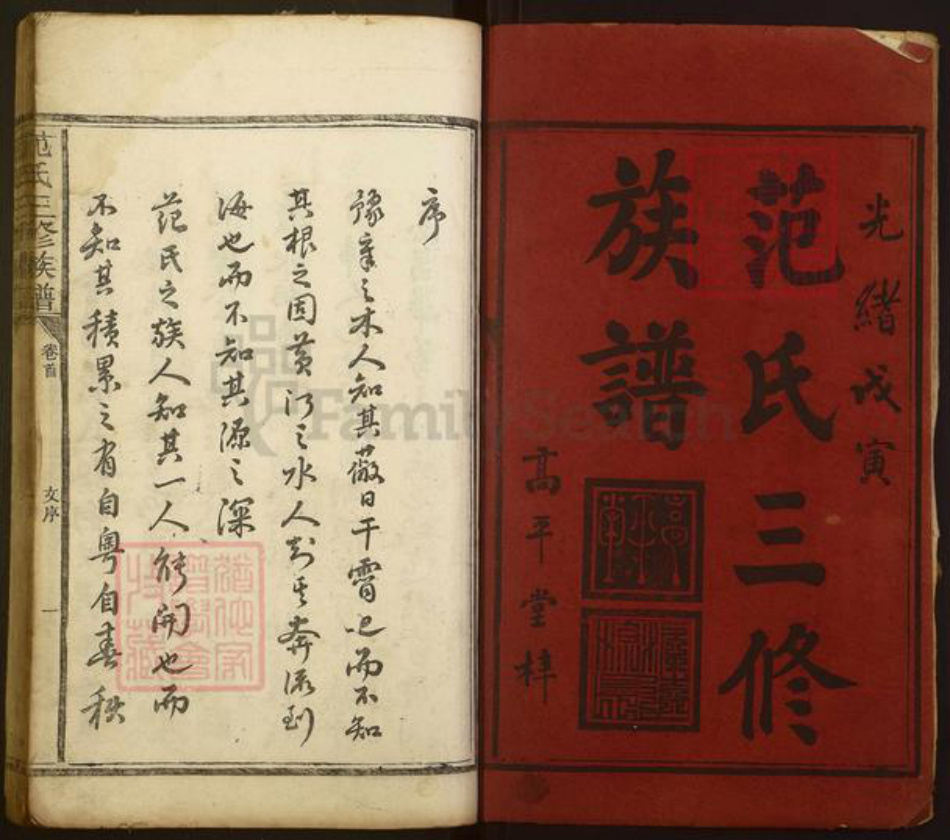 光緒戊寅
范氏三修
族譜
高平堂梓
序
豫章之木人知其蔽日干霄也而不知
其根之固黃河之水人知其奔流到
海也而不知其源之深
范氏之族人知其一人能開也而
不知其積累之有自粵自春秋
范氏三修族譜
卷首
文序
一
FamilySearch